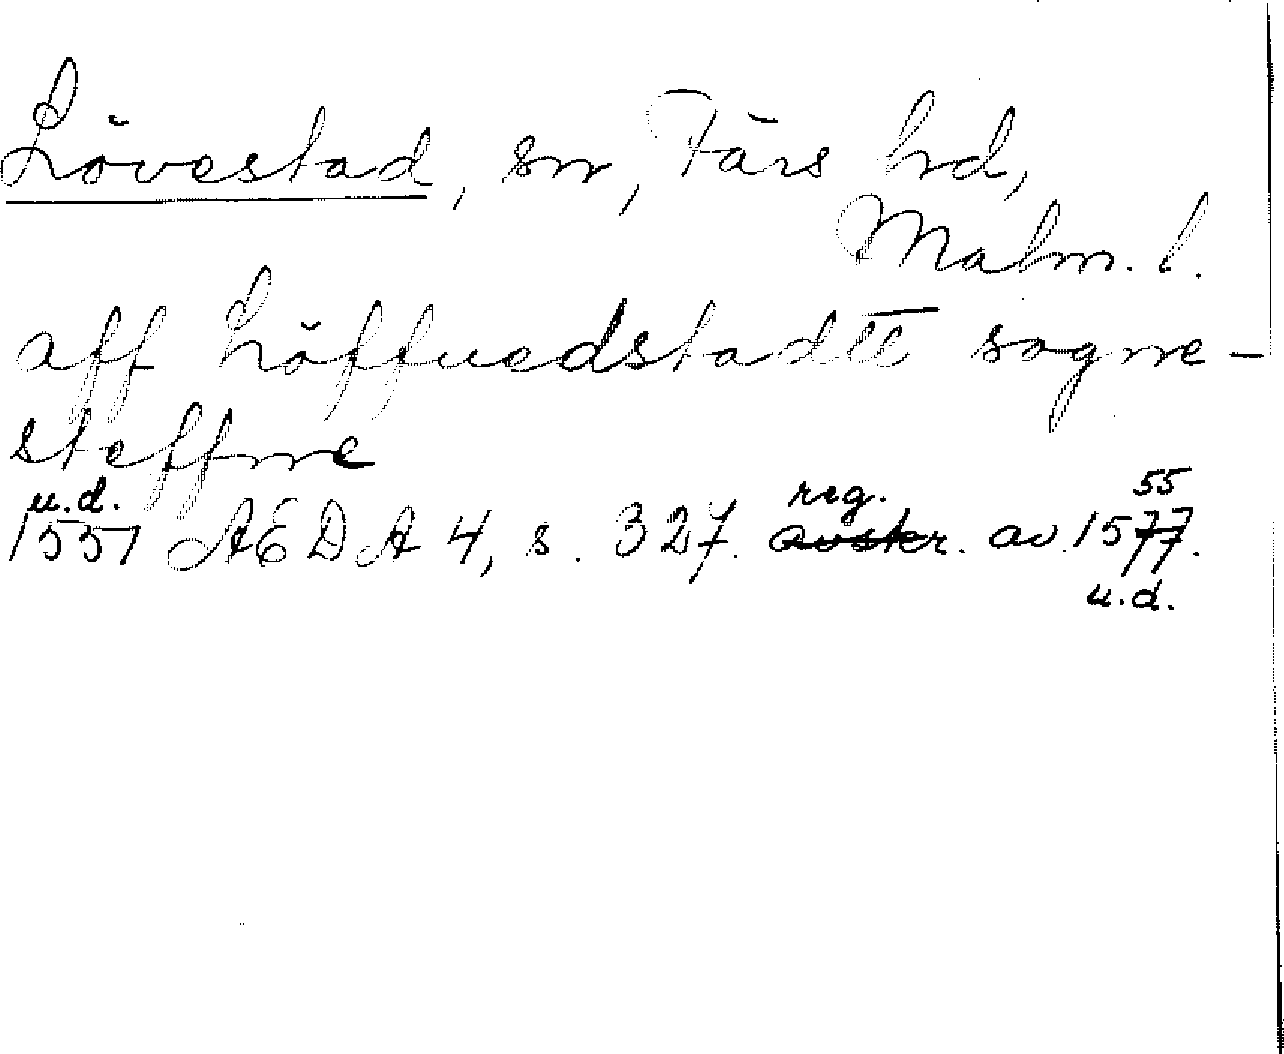 Lövestad, sn, Färs hd,
Malm. l.
aff Löffuedstadtt sogne-
steffne
u.d. reg. 55
1551 AEDA 4, s. 327. avskr. av 1577.
u.d.